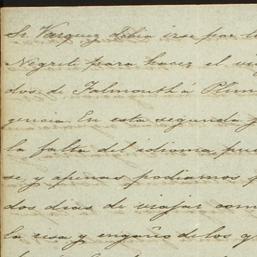 Sr Vasquez debia irse por la
Negrete para hacer el via
dos de Falmouth á Plim
gencia. En esta segunda j
la falta del idioma, pue
se, y apenas podiamos q
dos dias de viajar com
la risa y engaño de los q